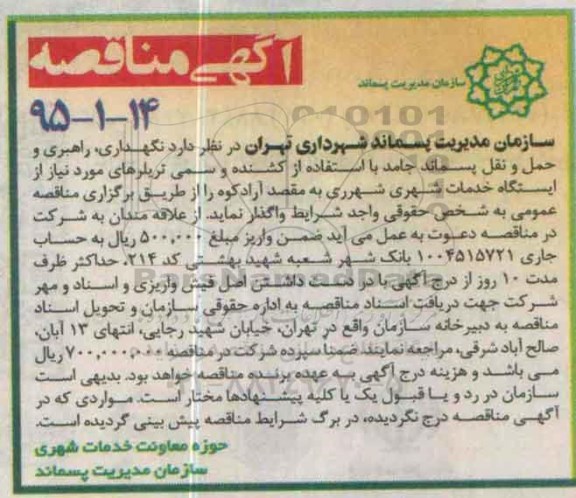 سازمان مدیریت پسماند
آگهی مناقصه
۹۵-۱-۱۴
سازمان مدیریت پسماند شهرداری تهران در نظر دارد نگهداری، راهبری و
حمل و نقل پسماند جامد با استفاده از کشنده و سمی تریلرهای مورد نیاز از
ایستگاه خدمات شهری شهرری به مقصد آرادکوه را از طریق برگزاری مناقصه
عمومی به شخص حقوقی واجد شرایط واگذار نماید. از علاقه مندان به شرکت
در مناقصه دعوت به عمل می آید ضمن واریز مبلغ ۵۰۰,۰۰۰ ریال به حساب
جاری ۱۰۰۴۵۱۵۷۲۱ بانک شهر شعبه شهید بهشتی کد ۲۱۴، حداکثر ظرف
مدت ۱۰ روز از درج آگهی با در دست داشتن اصل فیش واریزی و اسناد و مهر
شرکت جهت دریافت اسناد مناقصه به اداره حقوقی سازمان و تحویل اسناد
مناقصه به دبیرخانه سازمان واقع در تهران، خیابان شهید رجایی، انتهای ۱۳ آبان،
صالح آباد شرقی، مراجعه نمایند ضمنا سپرده شرکت در مناقصه ۷۰۰,۰۰۰,۰۰۰ ریال
می باشد و هزینه درج آگهی به عهده برنده مناقصه خواهد بود. بدیهی است
سازمان در رد و یا قبول یک یا کلیه پیشنهادها مختار است. مواردی که در
آگهی مناقصه درج نگردیده، در برگ شرایط مناقصه پیش بینی گردیده است.
حوزه معاونت خدمات شهری
سازمان مدیریت پسماند
ParsNamadData